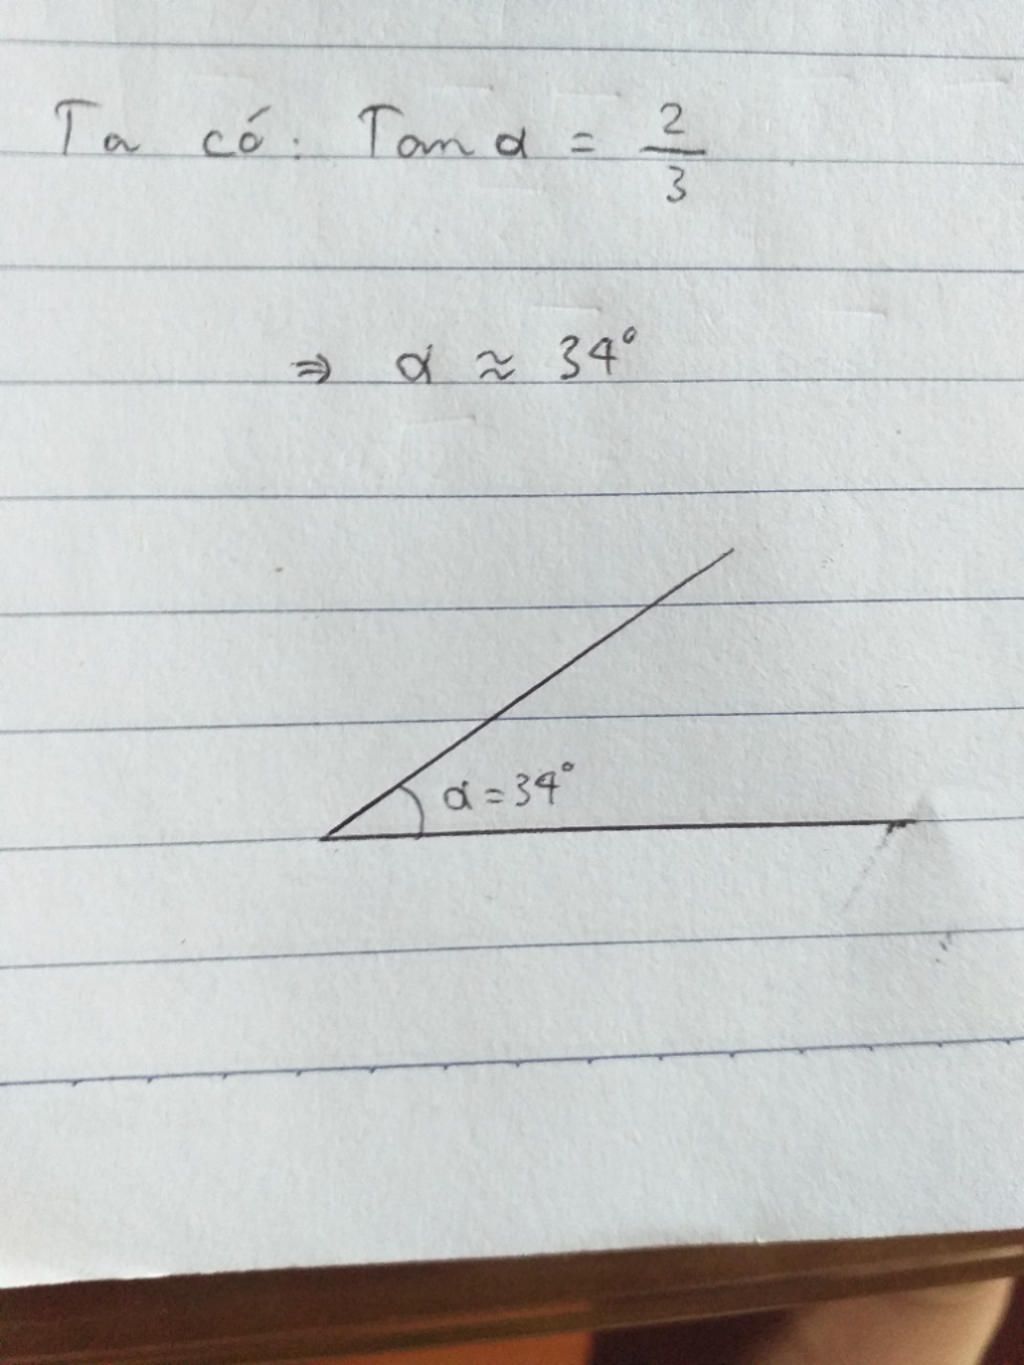 Ta có: Tan α = 2/3
⇒ α ≈ 34°
α = 34°